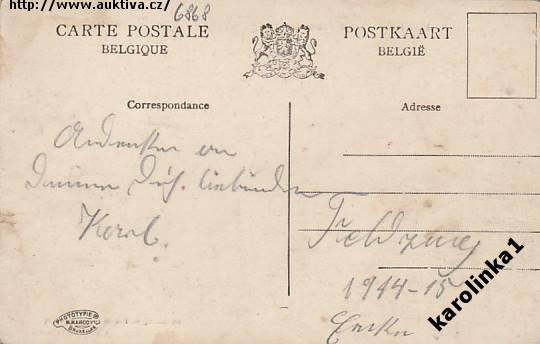 http://www.auktiva.cz/
6868
CARTE POSTALE
BELGIQUE
POSTKAART
BELGIË
Correspondance
Adresse
Andenken an
Deinen Dich liebenden
Karl.
Feldzug
1914-15
PHOTOTYPIE
BRUXELLES
karolinka1